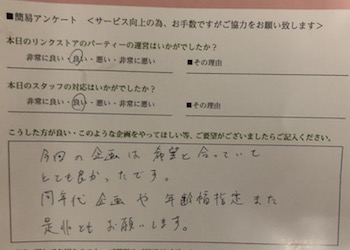 ■簡易アンケート <サービス向上の為、お手数ですがご協力をお願い致します>
本日のリンクストアのパーティーの運営はいかがでしたか?
非常に良い・良い・悪い・非常に悪い ■その理由
本日のスタッフの対応はいかがでしたか?
非常に良い・良い・悪い・非常に悪い ■その理由
こうした方が良い・このような企画をやってほしい等、ご要望がございましたらご記入ください。
今回の企画は希望と合っていて
とても良かったです。
同年代企画や年齢幅指定また
是非ともお願いします。